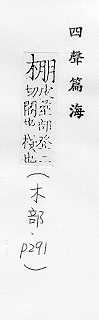 四聲篇海
棚 部 二
切閣也棧也
(木部. p291)